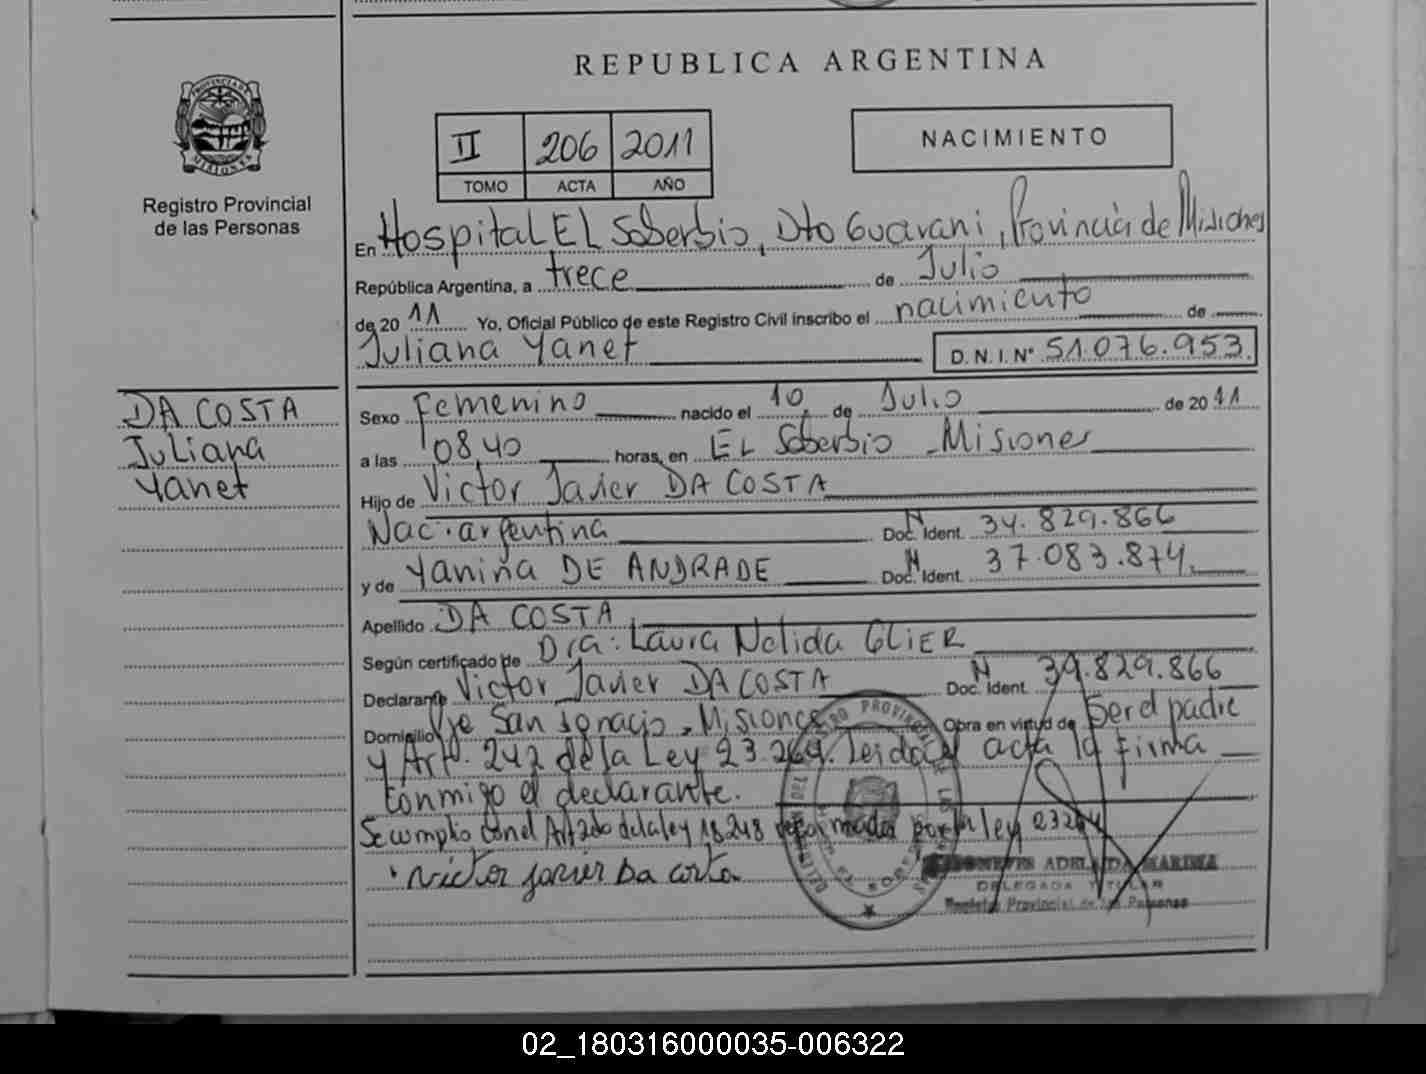 REPUBLICA ARGENTINA
PROVINCIA DE MISIONES
Registro Provincial
de las Personas
II 206 2011
TOMO ACTA AÑO
NACIMIENTO
En Hospital EL Soberbio, Dto Guarani, Provincia de Misiones
República Argentina, a trece de Julio
de 20 11 Yo, Oficial Público de este Registro Civil inscribo el nacimiento de
Juliana Yanet D.N.I. Nº 51.076.953.
DA COSTA
Juliana
Yanet
Sexo Femenino nacido el 10 de Julio de 20 11
a las 08 40 horas, en EL Soberbio - Misiones
Hijo de Victor Javier DA COSTA
Nac. argentina Doc. Ident. 34.829.866
y de Yanina DE ANDRADE Doc. Ident. 37.083.874.
Apellido DA COSTA
Según certificado de Dra: Laura Nelida GLIER
Declarante Victor Javier DA COSTA Doc. Ident. 39.829.866
Domicilio San Ignacio - Misiones Obra en virtud de ser el padre
y Art. de la Ley 23.264. Leido el acta la firma
conmigo el declarante.
Se cumplio con el Art 2do de la ley 18248 por la ley
Victor Javier Da costa
ADELAIDA MARINA
DELEGADA TITULAR
Registro Provincial de las Personas
02_180316000035-006322